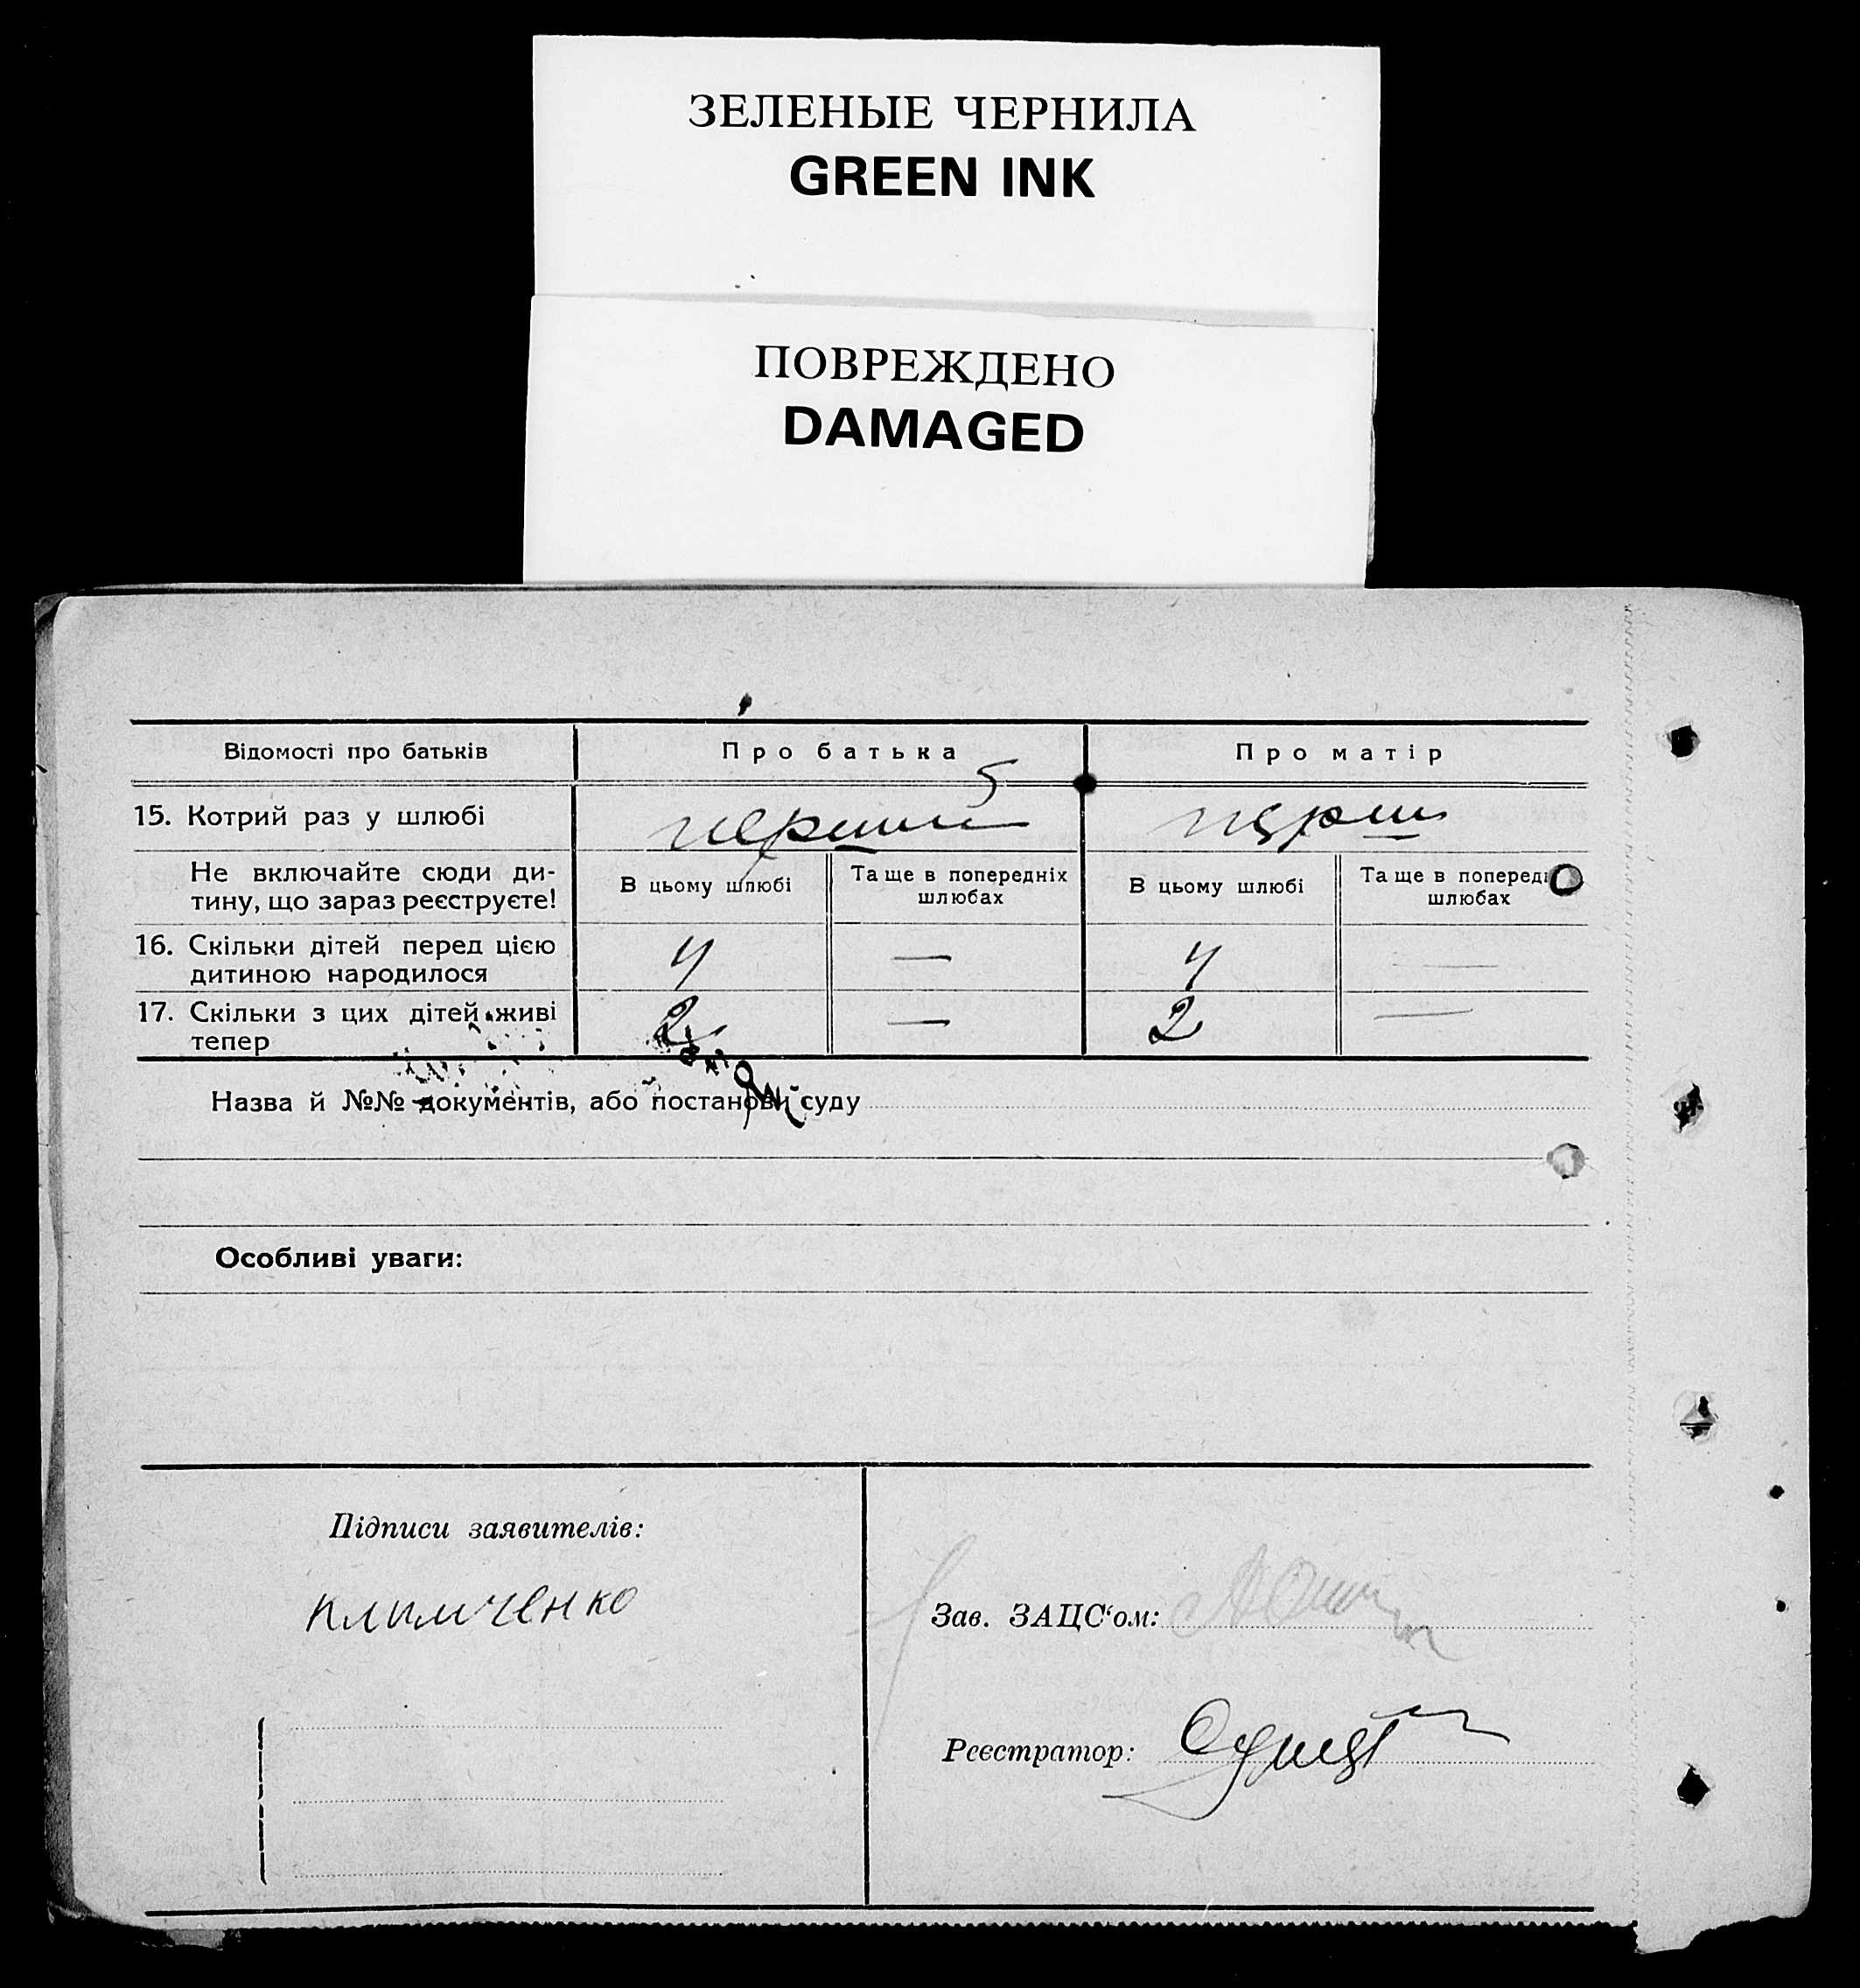 ЗЕЛЕНЫЕ ЧЕРНИЛА
GREEN INK
ПОВРЕЖДЕНО
DAMAGED
Відомості про батьків Про батька Про матір
15. Котрий раз у шлюбі перший перш
Не включайте сюди ди-
тину, що зараз реєструєте!
В цьому шлюбі Та ще в попередніх шлюбах В цьому шлюбі Та ще в попереді шлюбах
16. Скільки дітей перед цією
дитиною народилося 4 — 4 —
17. Скільки з цих дітей живі
тепер 2 — 2 —
Назва й №№ документів, або постанови суду
Особливі уваги:
Підписи заявителів:
Климченко
Зав. ЗАЦС‘ом:
Реєстратор: